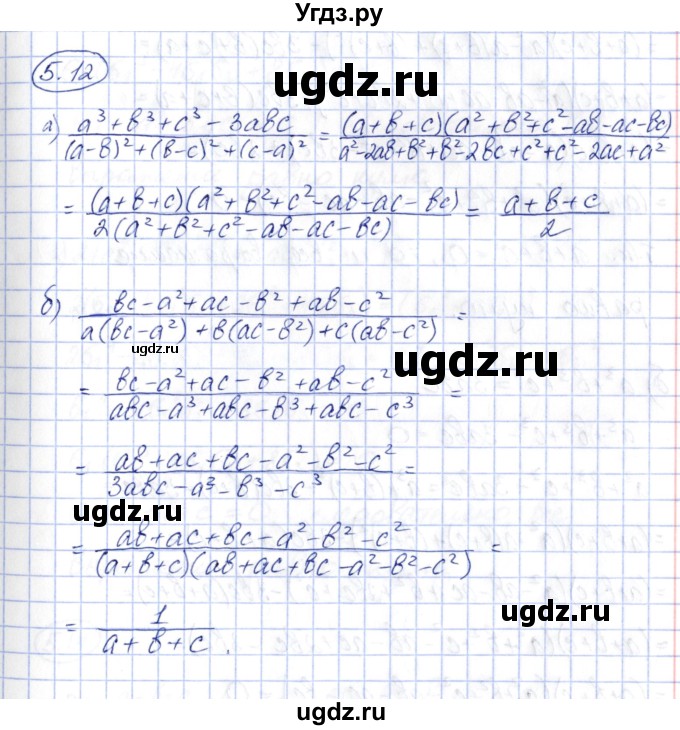 Угдз.ру
5.12
ugdz.ru
а) (a³+b³+c³-3abc)/((a-b)²+(b-c)²+(c-a)²) = ((a+b+c)(a²+b²+c²-ab-ac-bc))/(a²-2ab+b²+b²-2bc+c²+c²-2ac+a²)
= ((a+b+c)(a²+b²+c²-ab-ac-bc))/(2(a²+b²+c²-ab-ac-bc)) = (a+b+c)/2
б) (bc-a²+ac-b²+ab-c²)/(a(bc-a²)+b(ac-b²)+c(ab-c²)) =
ugdz.ru
ugdz.ru
= (bc-a²+ac-b²+ab-c²)/(abc-a³+abc-b³+abc-c³) =
= (ab+ac+bc-a²-b²-c²)/(3abc-a³-b³-c³) =
ugdz.ru
= (ab+ac+bc-a²-b²-c²)/((a+b+c)(ab+ac+bc-a²-b²-c²)) =
ugdz.ru
= 1/(a+b+c).
ugdz.ru